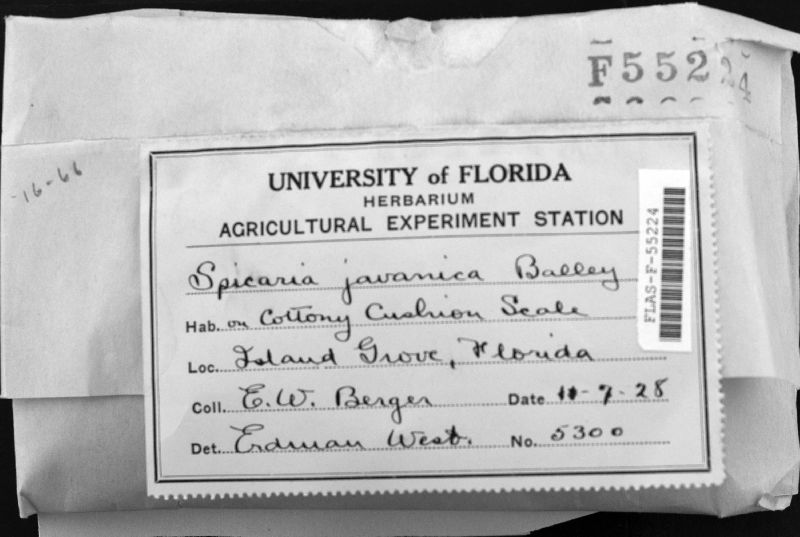 F55224
-16-66
UNIVERSITY of FLORIDA
HERBARIUM
AGRICULTURAL EXPERIMENT STATION
Spicaria javanica Balley
Hab. on Cottony Cushion Scale
Loc. Island Grove, Florida
Coll. E.W. Berger Date 11-7-28
Det. Erdman West. No. 5300
FLAS-F-55224